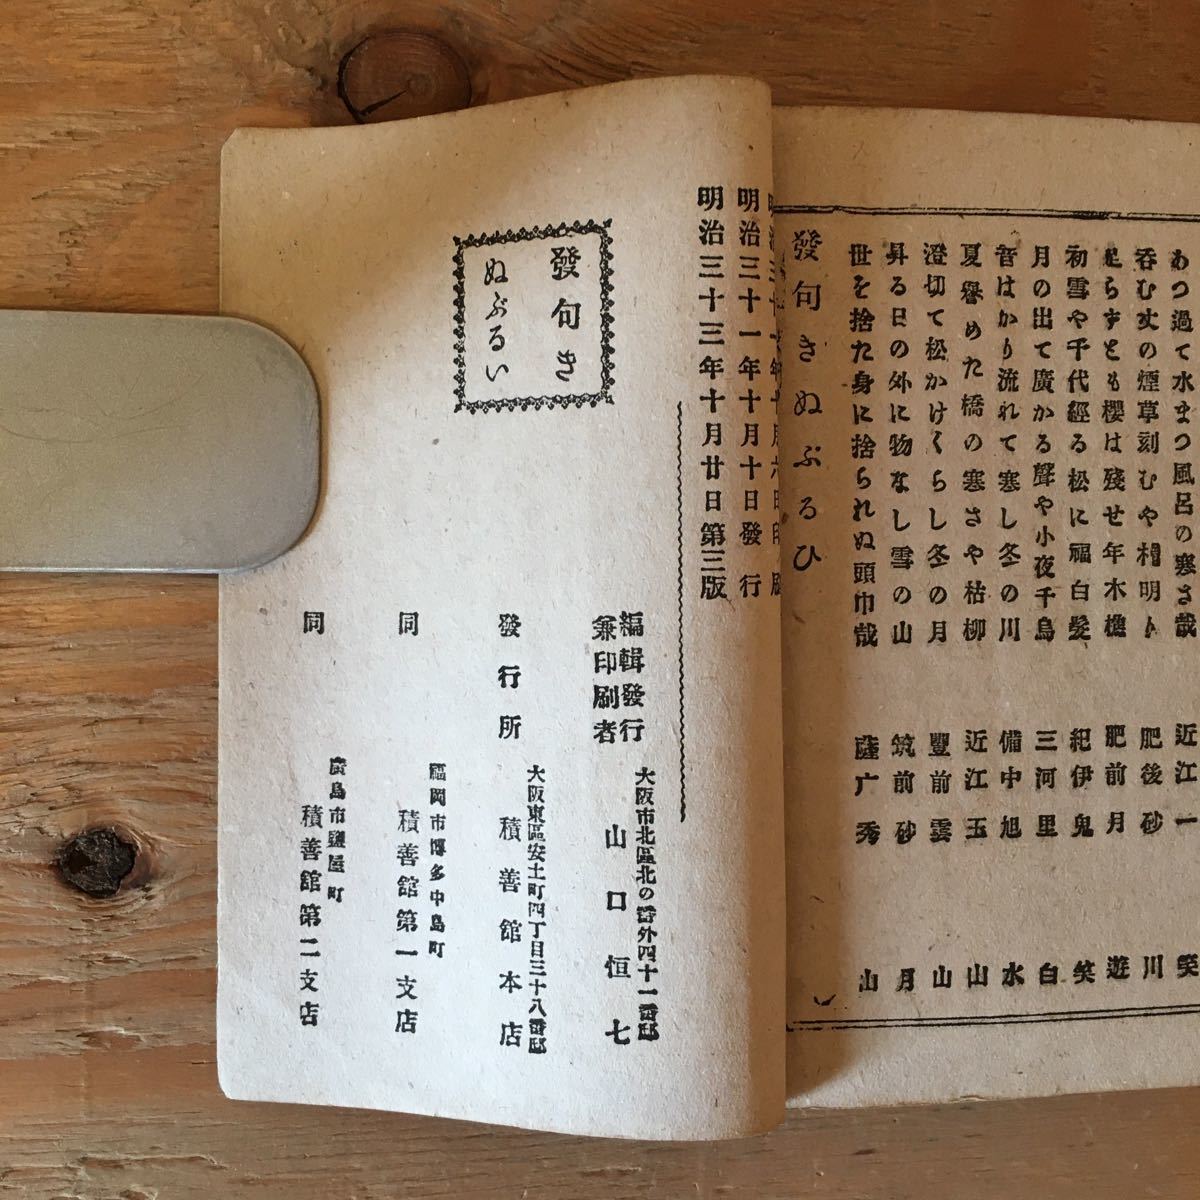 あつ過て水まつ風呂の寒さ哉 近江 一笑
呑む丈の煙草刻むや 明ト 肥後 砂川
足らずとも櫻は殘せ年木樵 肥前 月遊
初雪や千代經る松に福白髪 紀伊 鬼笑
月の出て廣かる聲や小夜千鳥 三河 里白
音はかり流れて寒し冬の川 備中 旭水
夏譽めた橋の寒さや枯柳 近江 玉山
澄切て松かけくらし冬の月 豐前 雲山
昇る日の外に物なし雪の山 筑前 砂月
世を捨た身に捨られぬ頭巾哉 薩广 秀山
發句きぬぶるひ
明治三十一年十月六日印刷
明治三十一年十月十日發行
明治三十三年十月廿日第三版
發句き
ぬぶるい
編輯發行
兼印刷者
大阪市北區北の番外四十一番邸
山口恒七
發行所
大阪東區安土町四丁目三十八番邸
積善館本店
同
福岡市博多中島町
積善館第一支店
同
廣島市鹽屋町
積善館第二支店